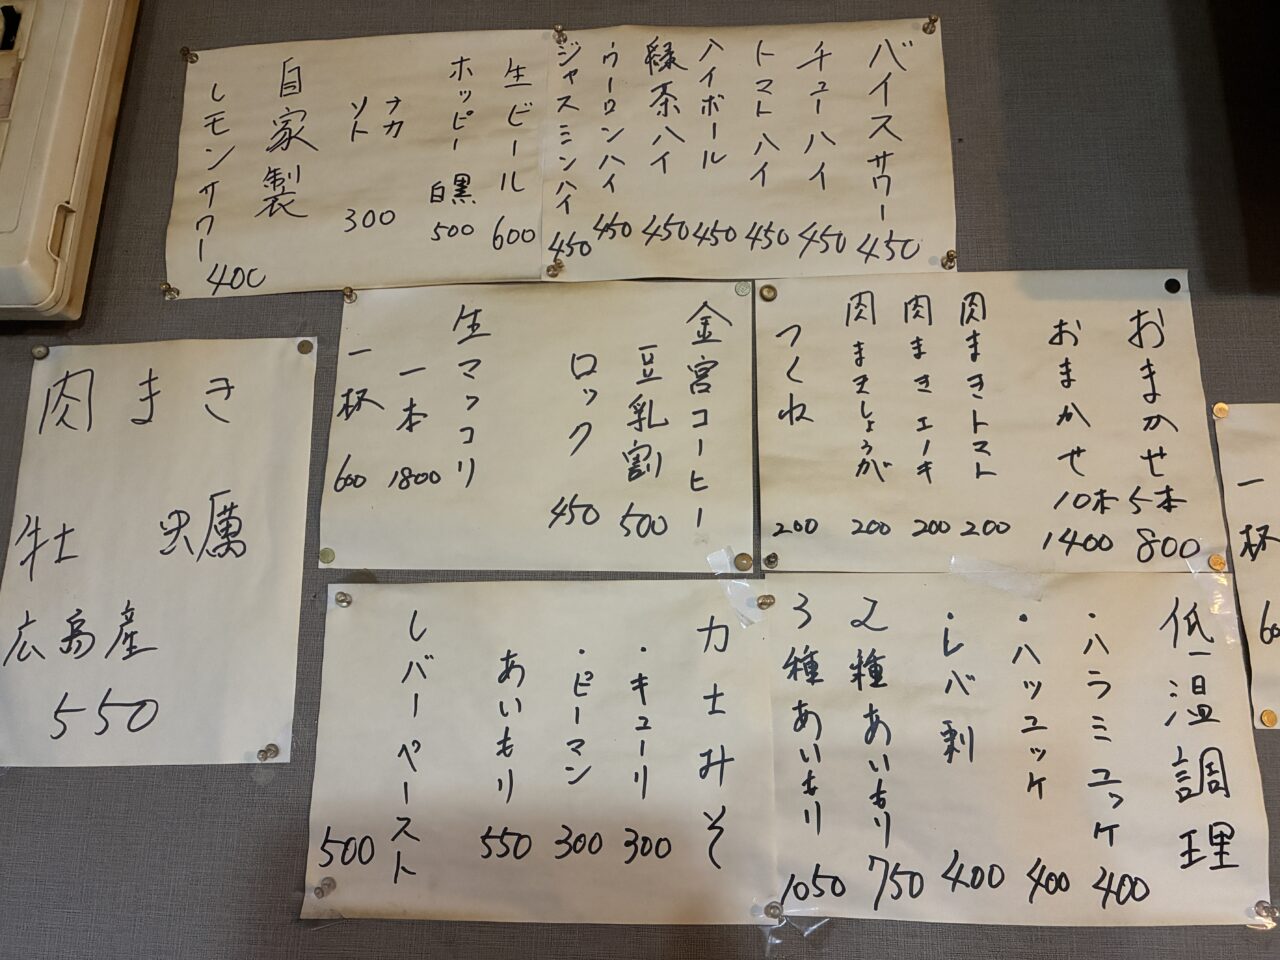 バイスサワー 450
チューハイ 450
トマトハイ 450
ハイボール 450
緑茶ハイ 450
ウーロンハイ 450
ジャスミンハイ 450
生ビール 600
ホッピー 白黒 500
ナカ
ソト 300
自家製
レモンサワー 400
おまかせ 5本 800
おまかせ 10本 1400
肉まきトマト 200
肉まきエーキ 200
肉まきしょうが 200
つくね 200
金宮コーヒー
豆乳割 500
ロック 450
生マッコリ
一本 1800
一杯 600
肉まき
牡蠣
広島産
550
低温調理
・ハラミユッケ 400
・ハツユッケ 400
・レバ刺 400
2種あいもり 750
3種あいもり 1050
カ士みそ
・キューリ 300
・ピーマン 300
あいもり 550
レバーペースト 500
一杯